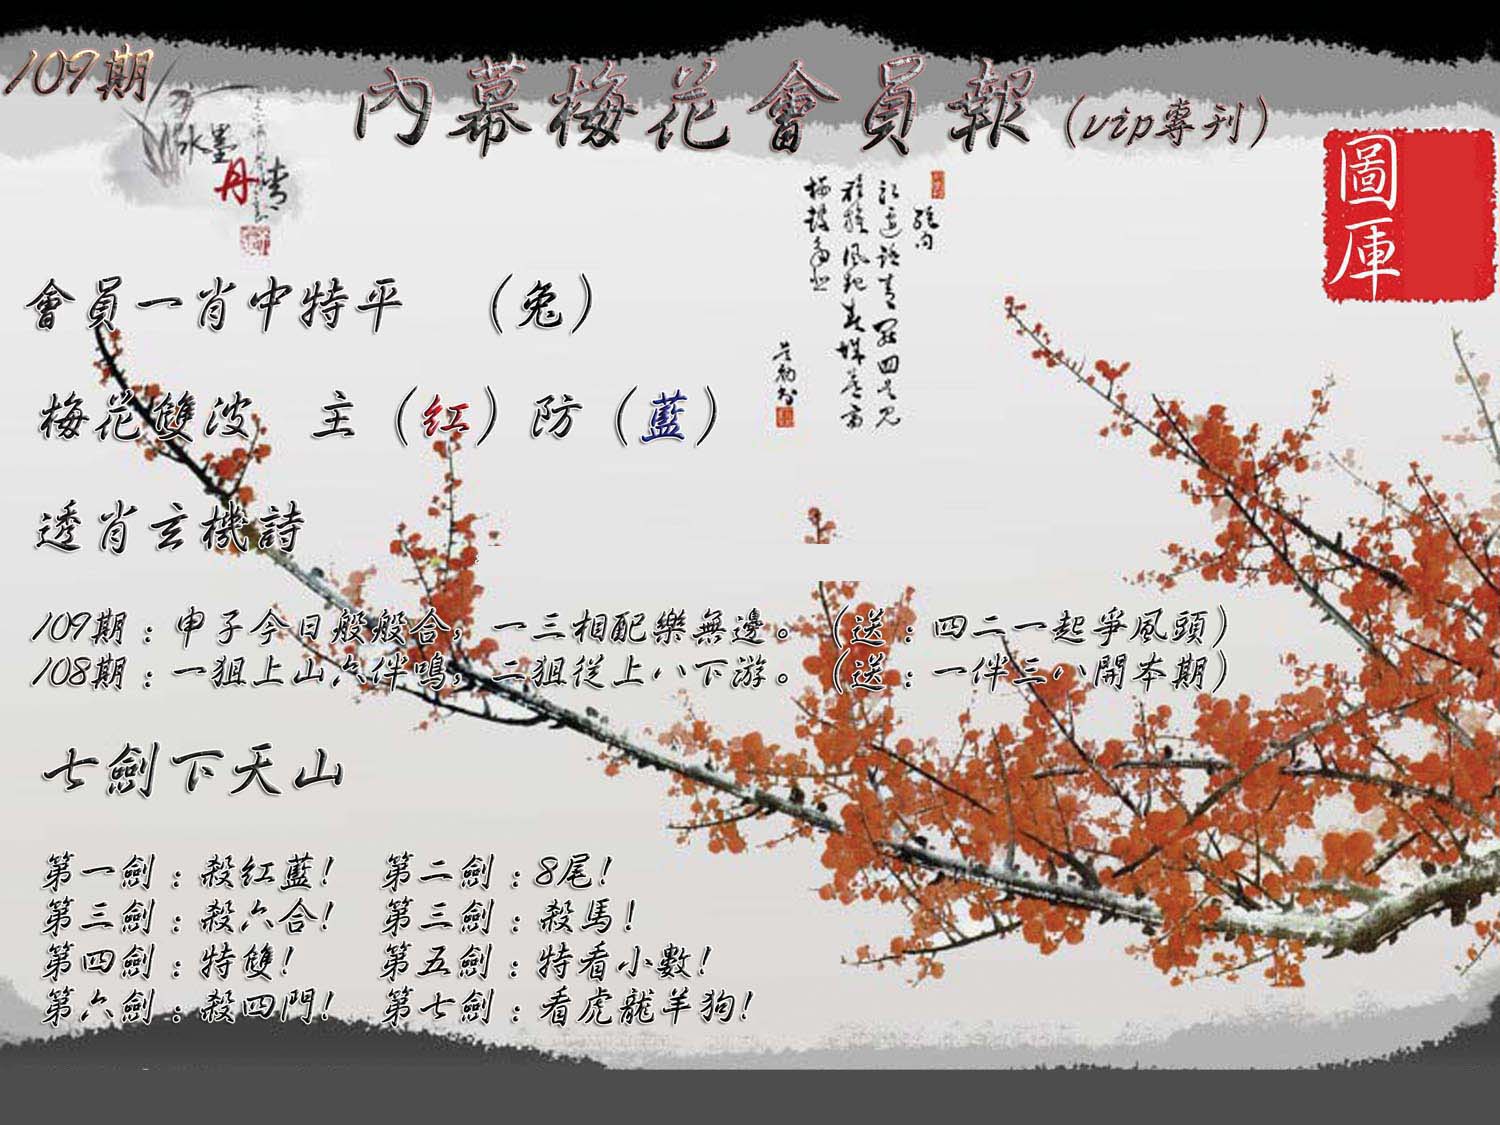 109期
內幕梅花會員報（vip專刊）
水墨
丹青
圖庫
會員一肖中特平　（兔）
梅花雙波　主（紅）防（藍）
透肖玄機詩
109期：申子今日般般合，一三相配樂無邊。（送：四二一起爭風頭）
108期：一狙上山六伴鳴，二狙從上八下游。（送：一伴三八開本期）
七劍下天山
第一劍：殺紅藍！　第二劍：8尾！
第三劍：殺六合！　第三劍：殺馬！
第四劍：特雙！　第五劍：特看小數！
第六劍：殺四門！　第七劍：看虎龍羊狗！